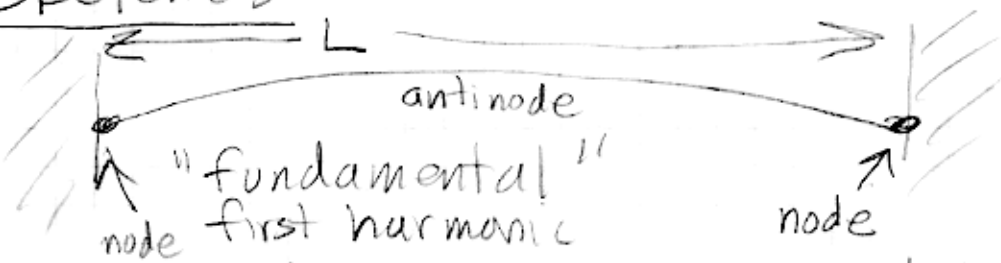 L
antinode
"fundamental"
first harmonic
node
node